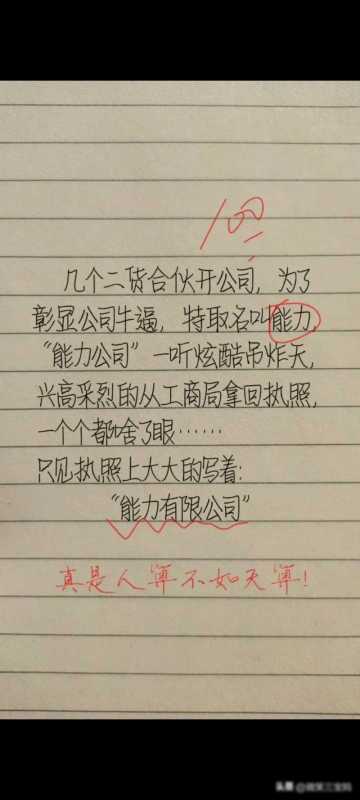 100
几个二货合伙开公司，为了
彰显公司牛逼，特取名叫能力，
“能力公司”一听炫酷吊炸天，
兴高采烈的从工商局拿回执照，
一个个都啥了眼……
只见执照上大大的写着：
“能力有限公司”
真是人算不如天算！
头条 @微笑三宝妈